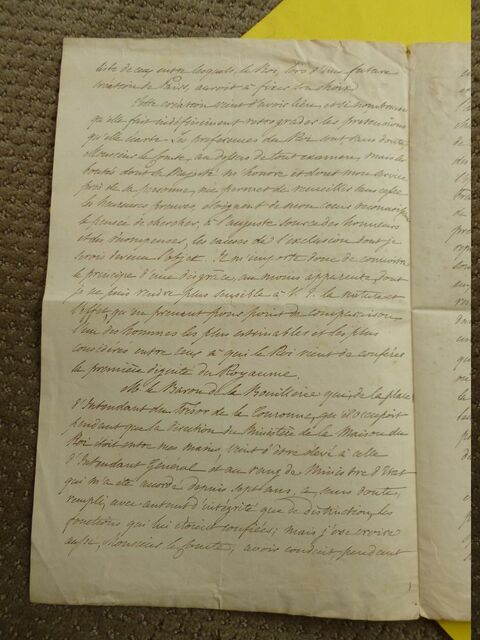 liste de ceux entre lesquels, le Roi, lors d'une future
création de Pairs, auroit à fixer son choix.
Cette création vient d'avoir lieu et le nombre
qu'elle fait indéfiniment rétrograder les prétensions
qu'elle écarte. Les préférences du Roi sont sans doute,
Monsieur le Comte, au dessus de tout examen, mais les
bontés dont Sa Majesté m'honore et dont mon service
près de Sa personne, me permet de recueillir sans cesse
les heureuses preuves, éloignent de mon cœur reconnaissant
la pensée de chercher, à l'auguste source des honneurs
et des récompenses, les causes de l'exclusion dont je
serois devenu l'objet. Il m'importe donc de connoitre
le principe d'une disgrâce, au moins apparente, dont
je ne puis rendre plus sensible à V. E. la nature et
l'effet, qu'en prenant pour point de comparaison
l'un des hommes les plus estimables et les plus
considérés entre ceux à qui le Roi vient de conférer
la première dignité du Royaume.
M. le Baron de la Bouillerie qui, de la place
d'Intendant du Trésor de la Couronne, qu'il occupoit
pendant que la direction du Ministère de la Maison du
Roi étoit entre mes mains, vient d'être élevé à celle
d'Intendant Général et au rang de Ministre d'Etat
qui m'a été accordé depuis sept ans, a, sans doute,
rempli, avec autant d'intégrité que de distinction, les
fonctions qui lui étoient confiées; mais j'ose croire
aussi, Monsieur le Comte, avoir conduit, pendant